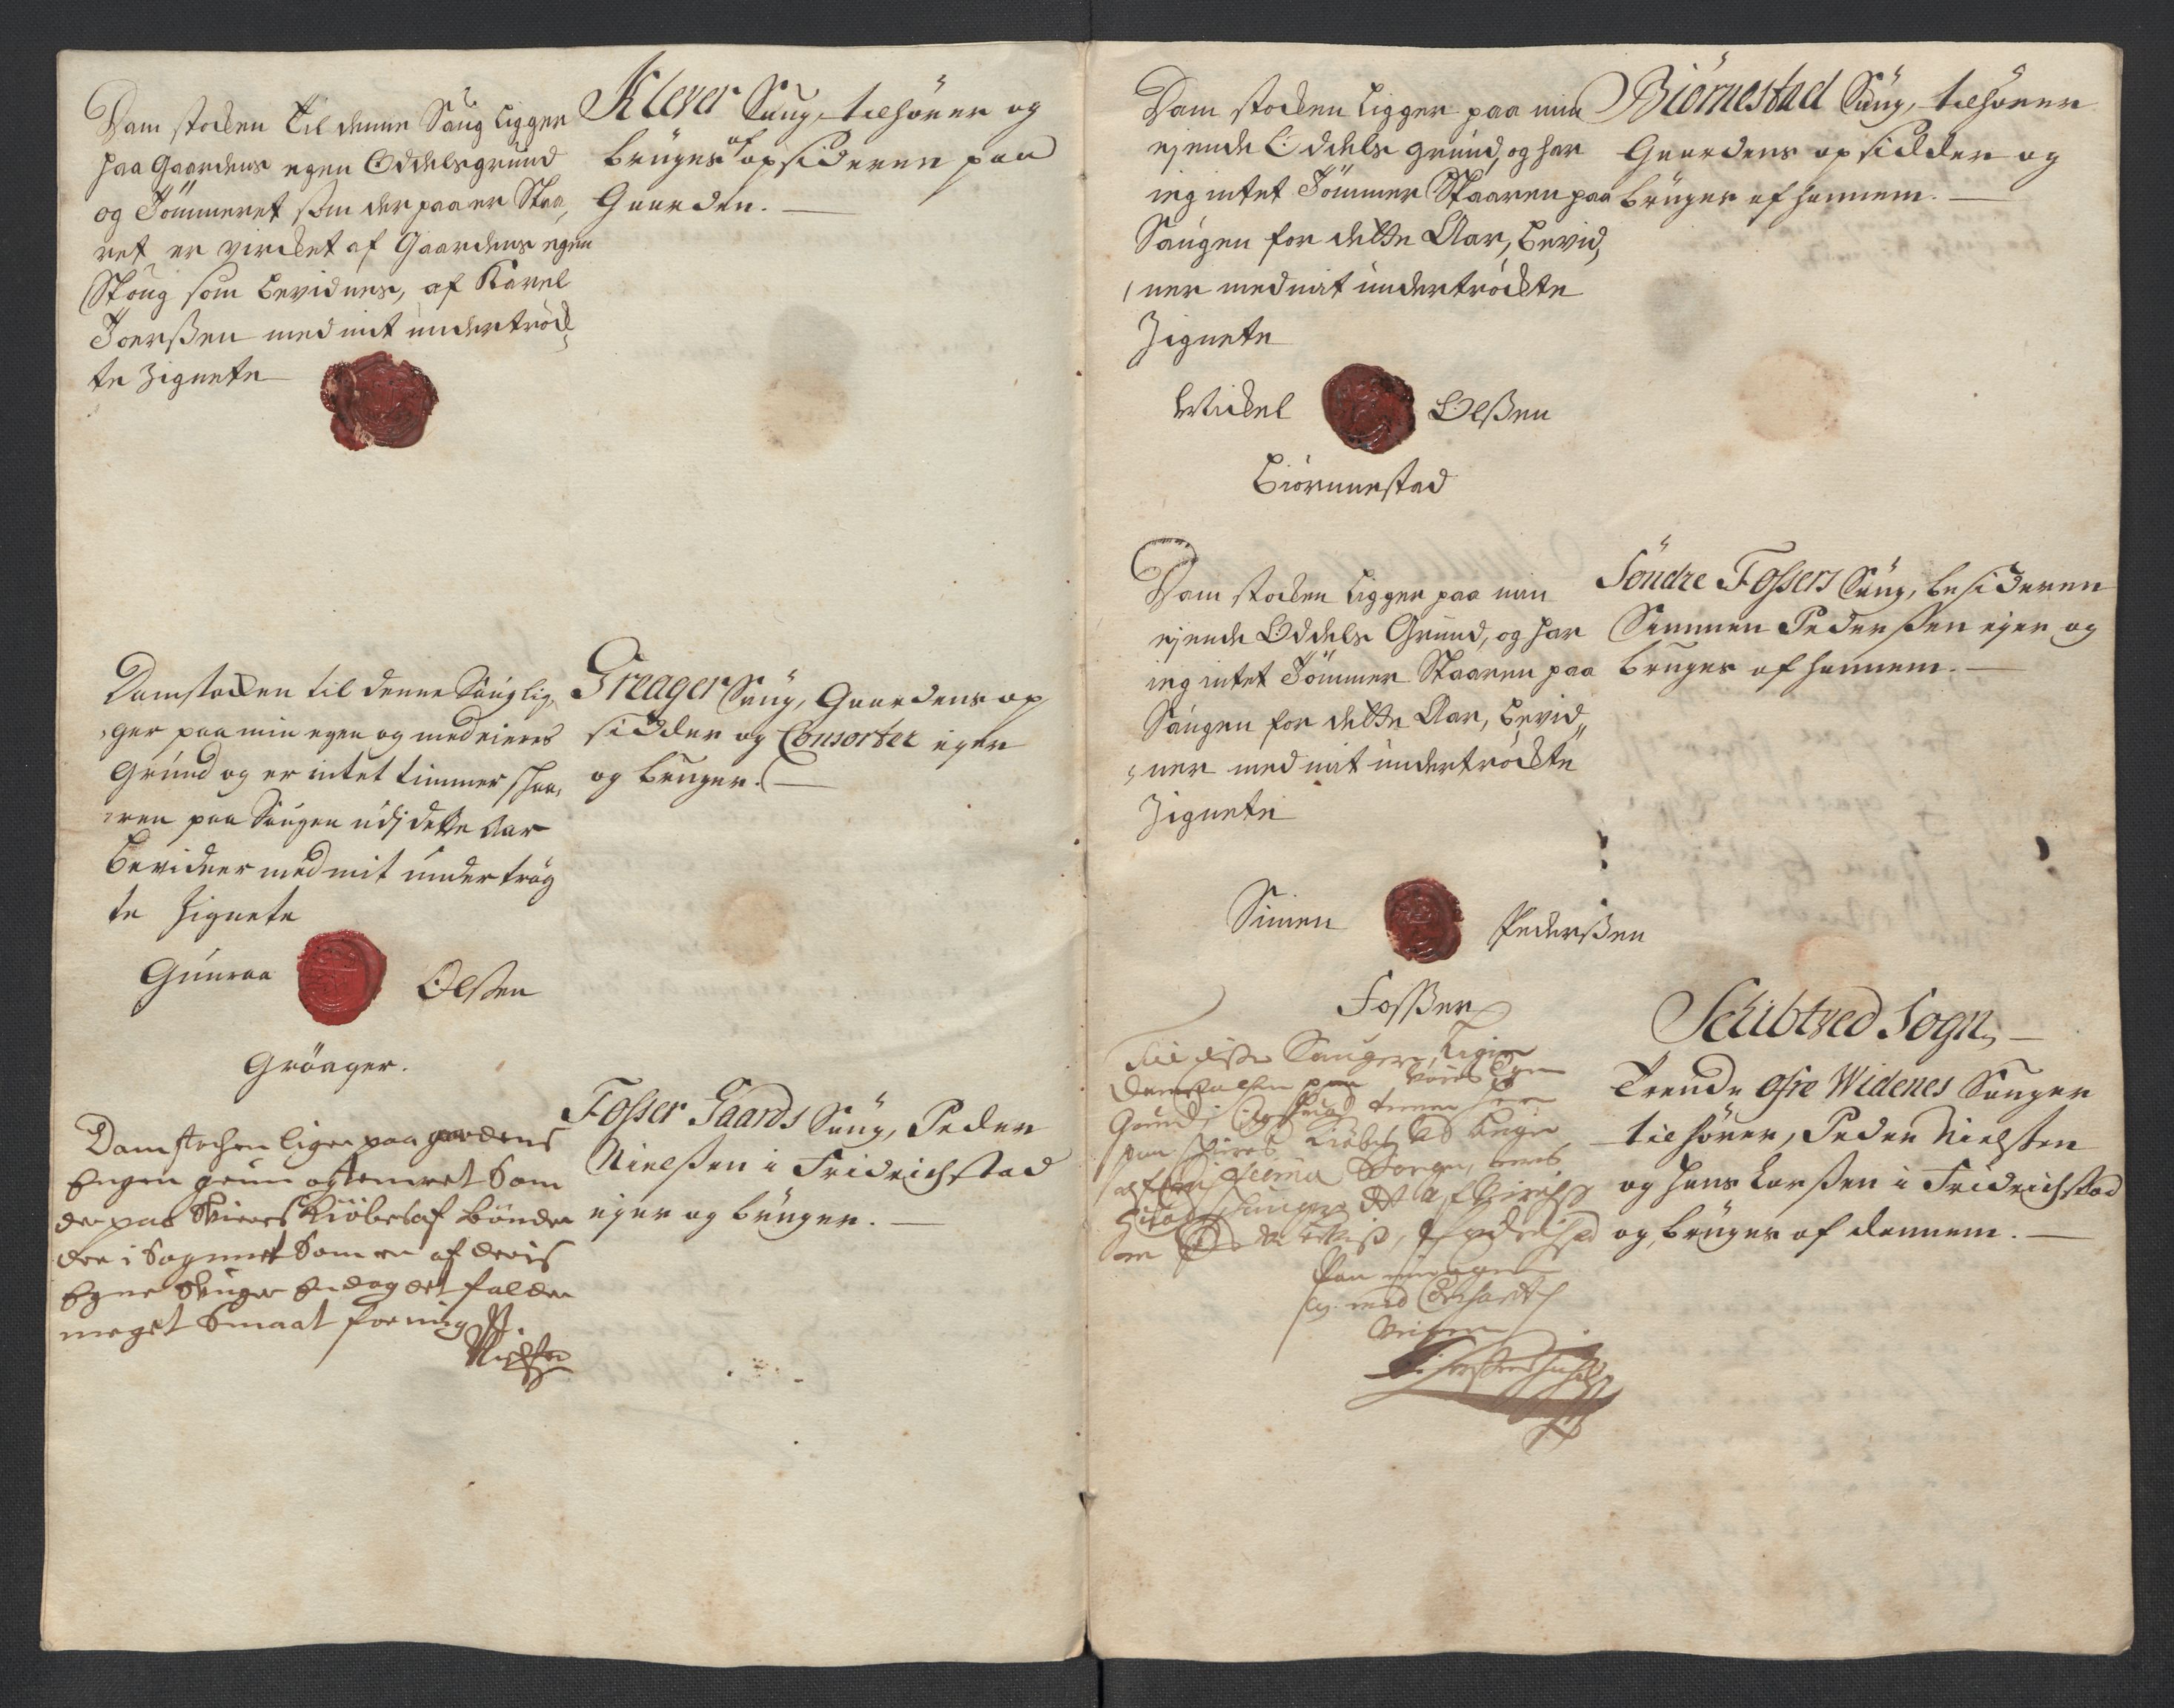 Dam stocken til denne Saug ligger
paa Gaardens egen Oddelsgrund
og Tömmeret som der paa er Skaa,
ret er vircket af Gaardens egen
Skoug som bevidnes, af Karel
Joerssen med mit undertröck
te Zignete
Klever Saug, tilhörer og
bruges af opsideren paa
Gaarden.
Damstocken til denne Saug lig,
ger paa min egen og medeieres
Grund og er intet timmer skaa,
ren paa Saugen udj dette Aar
bevidner med mit undertrög
te Zignete
Gunraa Olsen
Gröager.
Greager Saug, Gaardens op
sidder og Consorter eger
og bruger.
Dam stochen liger paa gaardens
Engen grun og temret Som
der paa Skieres Kiöbes af bönder
der i Sognnet Som er af deris
Egne Skuger Endog det falder
meget Smaat for mig P.
Nielssen
Fosser Gaards Saug, Peder
Nielssen i Fridrichstad
eger og bruger.
Dam stocken ligger paa min
ejende Oddels grund, og har
ieg intet Tömmer Skaaren paa
Saugen for dette Aar, bevid,
ner med mit undertröckte
Zignete
Mickel Olssen
Biörnnestad
Biörnestad Saug, tilhörer
Gaardens opsidder og
bruges af hannem.
Dam stocken ligger paa min
ejende Oddels Grund, og har
ieg intet Tömmer Skaaren paa
Saugen for dette Aar, bevid,,
ner med mit undertröckte
Zignete
Simen Pederssen
Fosser
Söndre Fossers Saug, besideren
Simmen Pederssen eger og
bruges af hannem.
Til disse Sauger Liger
Damstochen paa voris Egen
Grund,
paa Skieres Kiöbes
med
Schibtved Sogn,
Trende Ofre Widenes Sauger
tilhörer, Peder Nielssen
og Hans Larssen i Fridrichstad
og bruges af dennem.